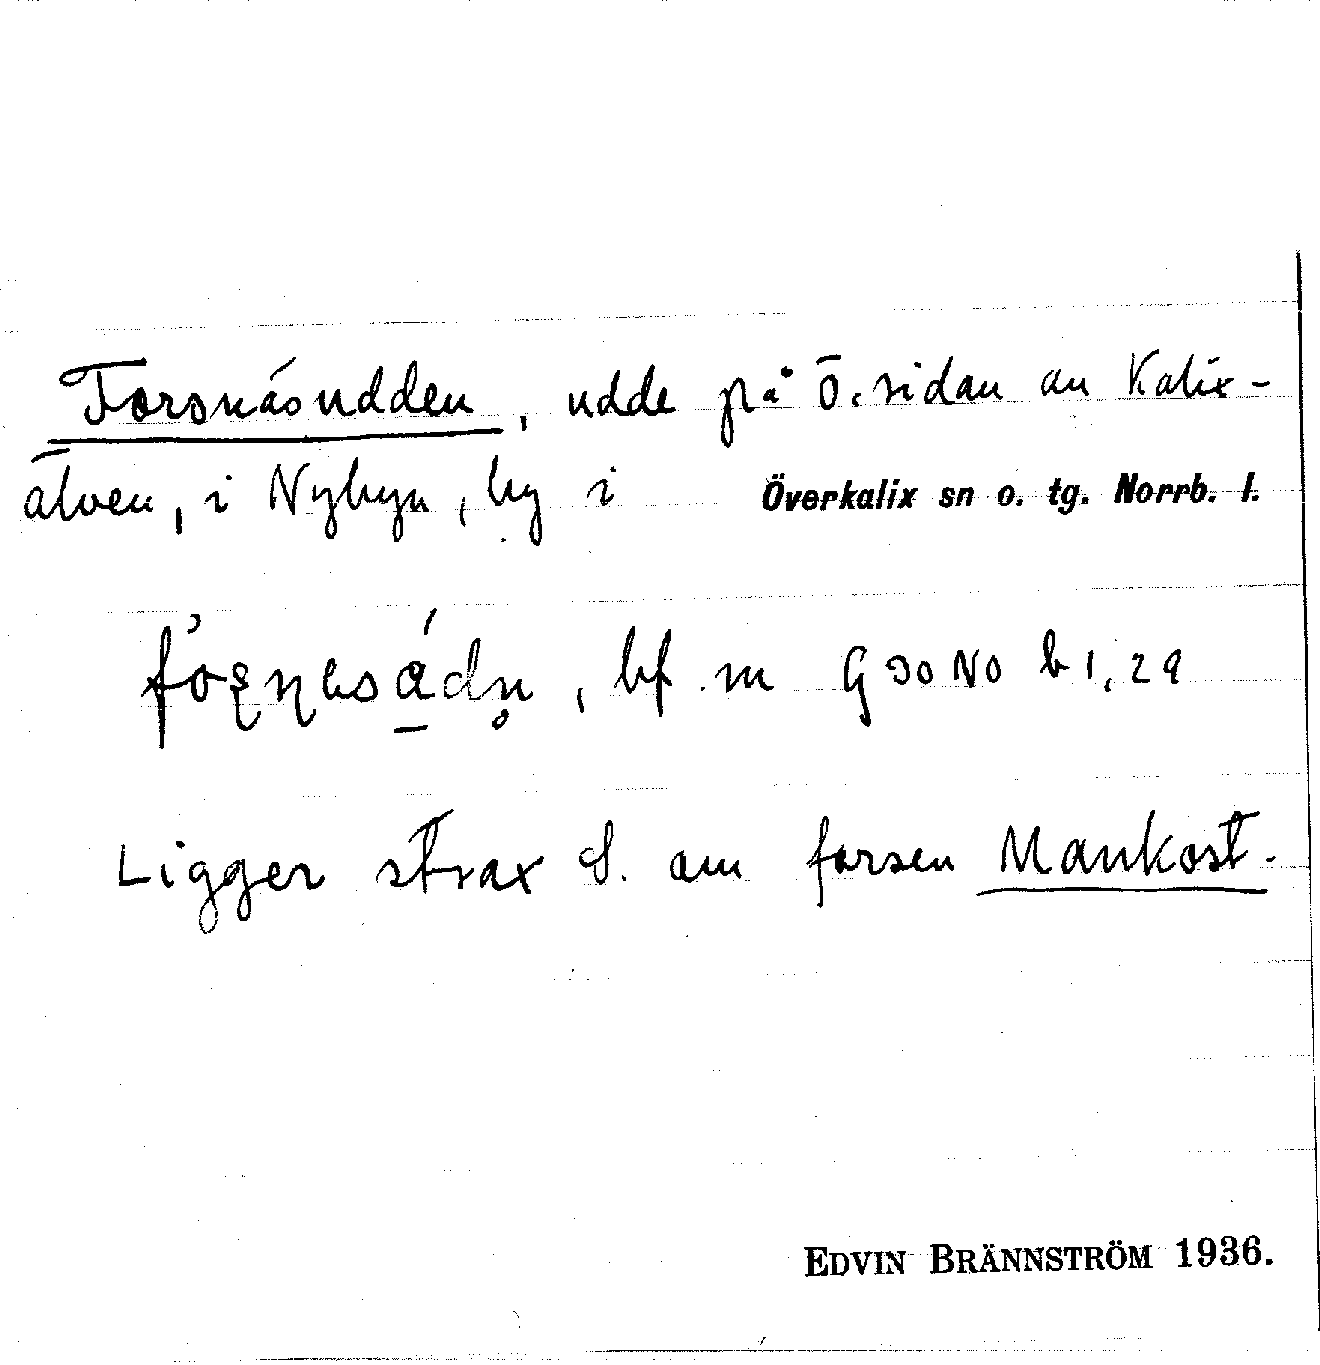 Forsnäsudden, udde på ö. sidan av Kalix-
älven, i Nybyn, by i Överkalix sn o. tg. Norrb. l.
bf. m G 30 NO b 1, 29
Ligger strax S. om forsen Mankost.
EDVIN BRÄNNSTRÖM 1936.